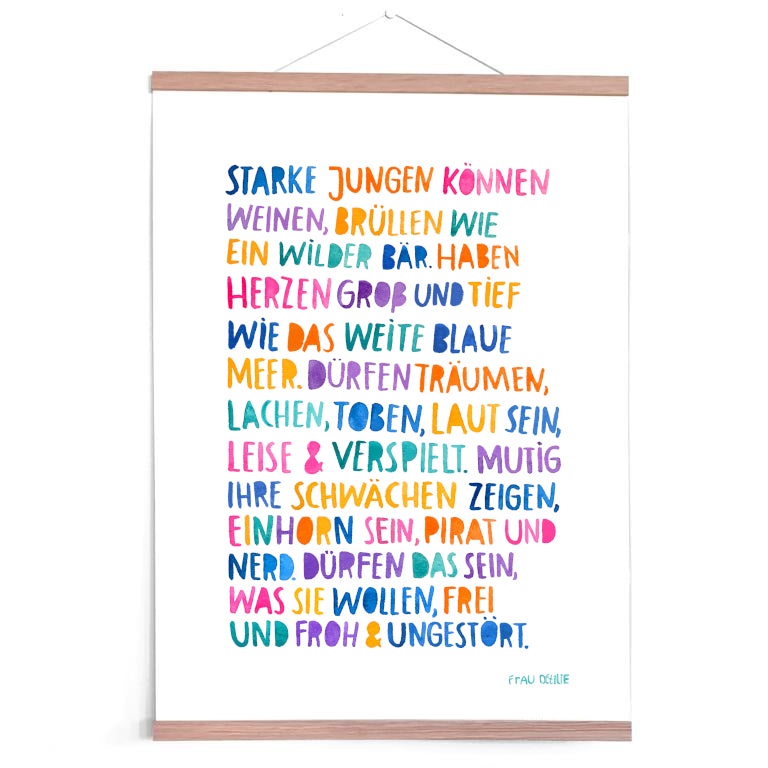 STARKE JUNGEN KÖNNEN
WEINEN, BRÜLLEN WIE
EIN WILDER BÄR. HABEN
HERZEN GROß UND TIEF
WIE DAS WEITE BLAUE
MEER. DÜRFEN TRÄUMEN,
LACHEN, TOBEN, LAUT SEIN,
LEISE & VERSPIELT. MUTIG
IHRE SCHWÄCHEN ZEIGEN,
EINHORN SEIN, PIRAT UND
NERD. DÜRFEN DAS SEIN,
WAS SIE WOLLEN, FREI
UND FROH & UNGESTÖRT.
FRAU